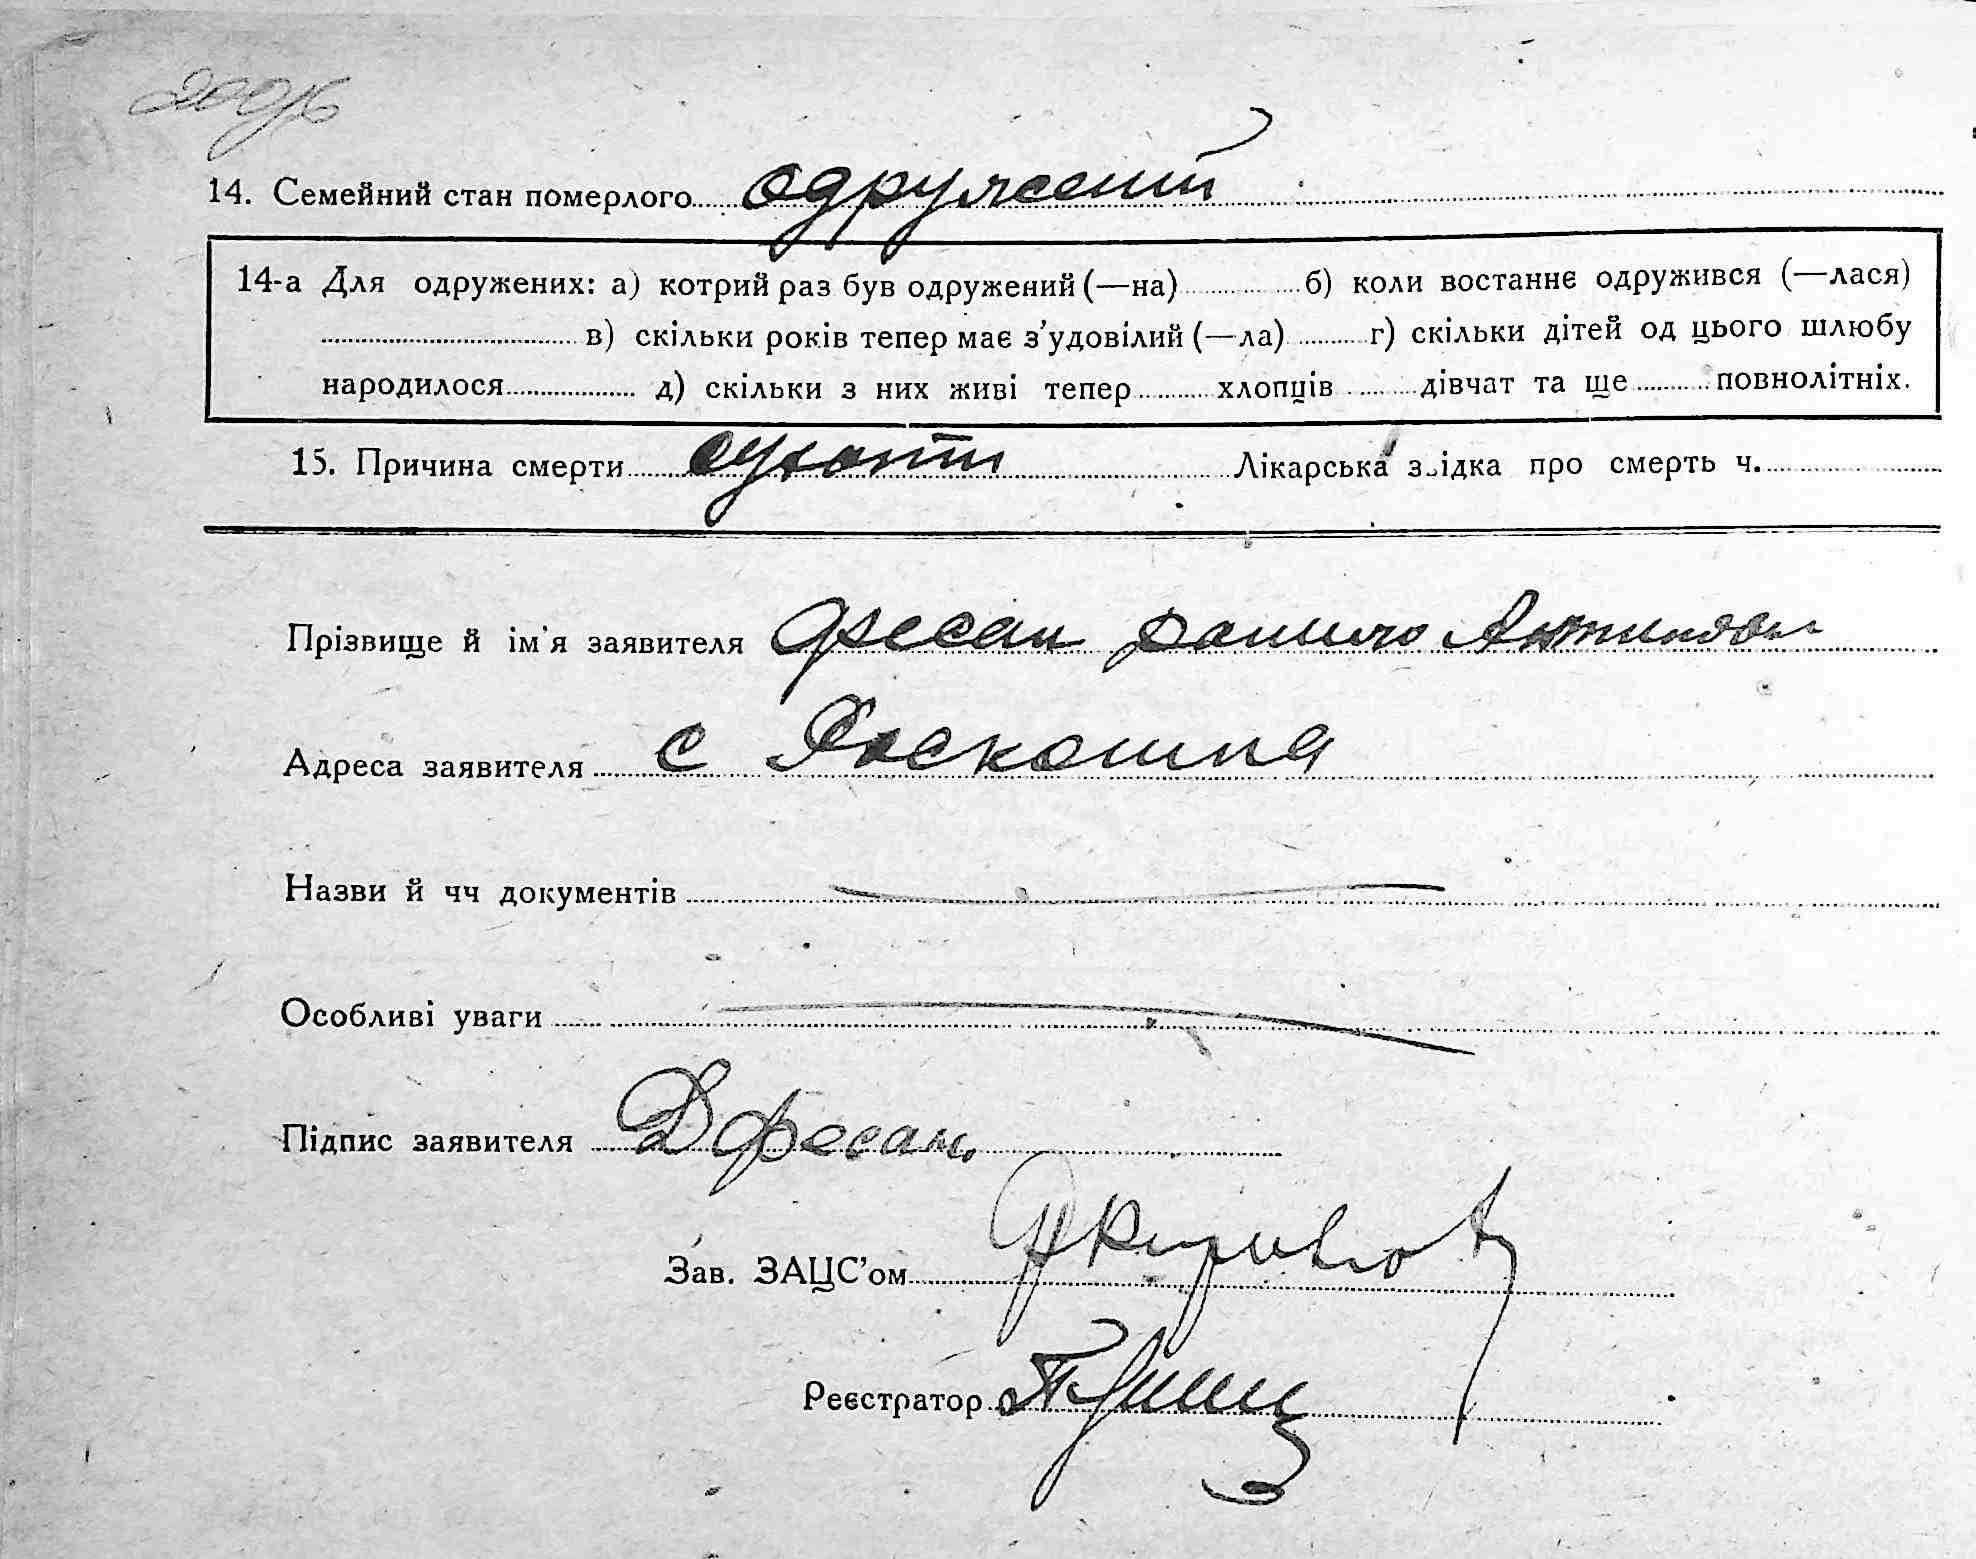 14. Семейний стан померлого одружений
14-а Для одружених: а) котрий раз був одружений (—на) б) коли востаннє одружився (—лася)
в) скільки років тепер має з’удовілий (—ла) г) скільки дітей од цього шлюбу
народилося д) скільки з них живі тепер хлопців дівчат та ще повнолітніх.
15. Причина смерти сухоти Лікарська звідка про смерть ч.
Прізвище й ім'я заявителя Фесан
Адреса заявителя с Роскошна
Назви й чч документів
Особливі уваги
Підпис заявителя Д Фесан.
Зав. ЗАЦС’ом
Реєстратор